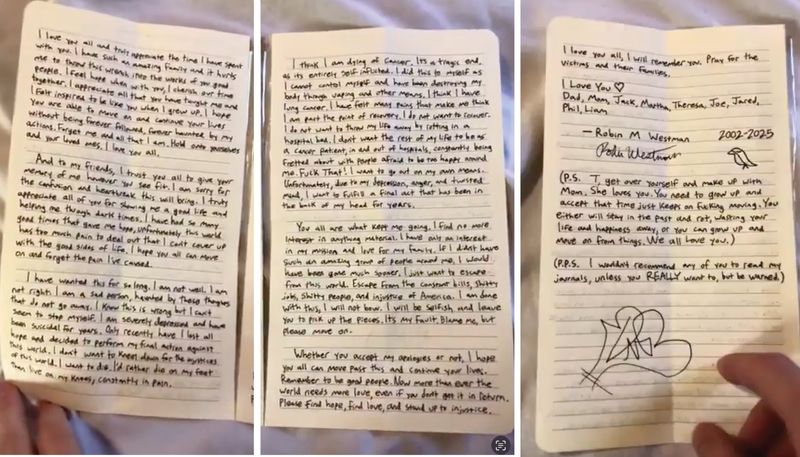 I love you all and truly appreciate the time I have spent
with you. I have such an amazing family and it hurts
me to throw this wrench into the works of you good
people. I feel hope when with you, I cherish our time
together. I appreciate all that you have taught me and
I felt inspired to be like you when I grew up. I hope
you are able to move on and continue your lives
without being forever followed, forever haunted by my
actions. Forget me and all that I am. Hold onto yourselves
and your loved ones. I love you all.
And to my friends, I trust you all to give your
memory of me however you see fit. I am sorry for
the confusion and heartbreak this will bring. I truly
appreciate all of you for showing me a good life and
helping me through dark times. I have had so many
good times that gave me hope, Unfortunately this world
has too much pain to deal out that I can't cover up
with the good sides of life. I hope you all can move
on and forget the pain I've caused.
I have wanted this for so long. I am not well. I am
not right. I am a sad person, haunted by these thoughts
that do not go away. I know this is wrong but I can't
seem to stop myself. I am severely depressed and have
been suicidal for years. Only recently have I lost all
hope and decided to perform my final action against
this world. I don't want to kneel down for the injustices
of this world. I want to die. I'd rather die on my feet
than live on my knees, constantly in pain.
I think I am dying of cancer. Its a tragic end
as its entirely self inflicted. I did this to myself as
I cannot control myself and have been destroying my
body through vaping and other means. I think I have
lung cancer. I have felt many pains that make me think
I am past the point of recovery. I do not want to forever.
I do not want to throw my life away by rotting in a
hospital bed. I don't want the rest of my life to be as
a cancer patient, in and out of hospitals, constantly being
fretted about with people afraid to be too happy around
me. Fuck That! I want to go out on my own means.
Unfortunately, due to my depression, anger, and twisted
mind, I want to fulfill a final act that has been in
the back of my head for years.
You all are what kept me going. I find no more
interest in anything material. I have only an interest
in my mission and love for my family. If I didn't have
such an amazing group of people around me, I would
have been gone much sooner. I just want to escape
from this world. Escape from the constant bills, shitty
jobs, shitty people, and injustice of America. I am done
with this, I will not bow. I will be selfish, and leave
you to pick up the pieces. Its my fault. Blame me, but
please move on.
Whether you accept my apologies or not, I hope
you all can move past this and continue your lives.
Remember to be good people. Now more than ever the
world needs more love, even if you don't get it in return.
Please find hope, find love, and stand up to injustice.
I love you all, I will remember you. Pray for the
victims and their families.
I Love You ♡
Dad, Mom, Jack, Martha, Theresa, Joe, Jared,
Phil, Liam
— Robin M Westman 2002-2025
Robin Westman
(P.S. T, get over yourself and make up with
Mom. She loves you. You need to grow up and
accept that time just keeps on fucking moving. You
either will stay in the past and rot, wasting your
life and happiness away, or you can grow up and
move on from things. We all love you.)
(P.P.S. I wouldn't recommend any of you to read my
journals, unless you REALLY want to, but be warned.)